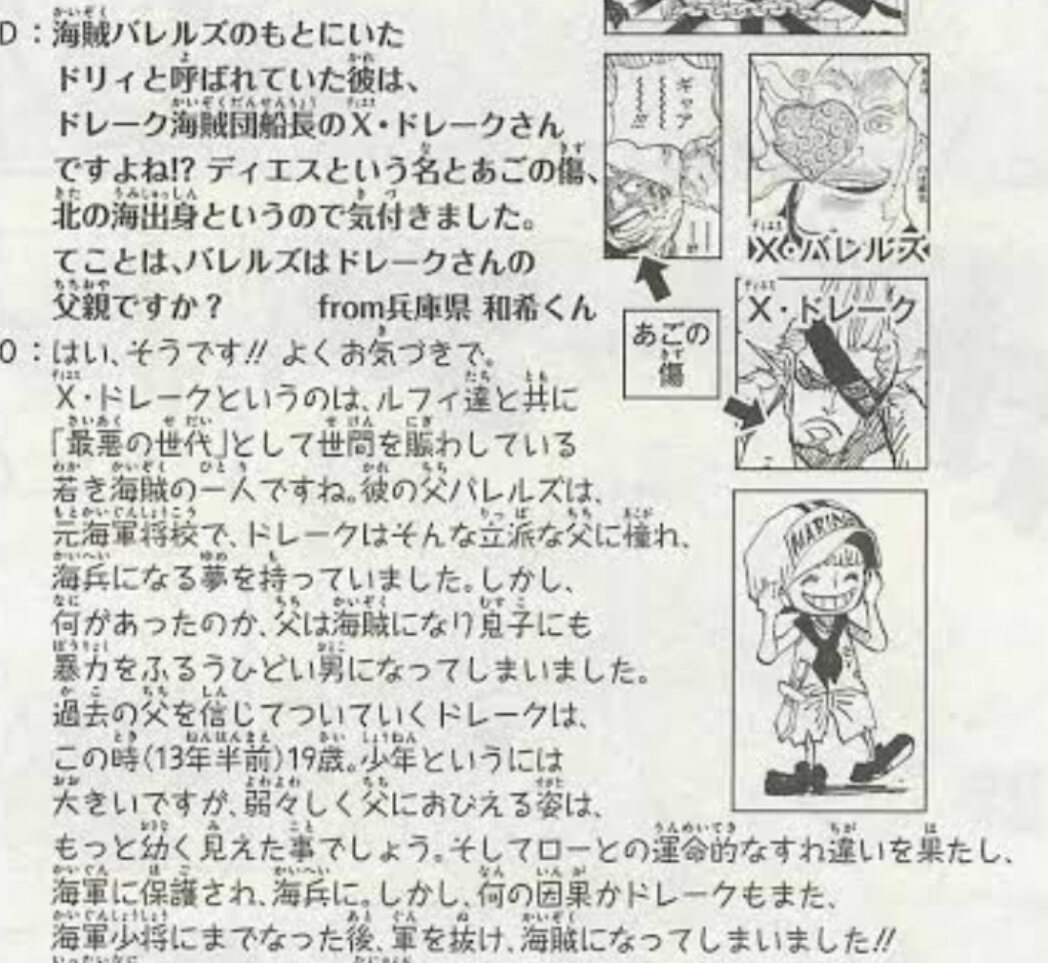 D：海賊バレルズのもとにいた
ドリィと呼ばれていた彼は、
ドレーク海賊団船長のX・ドレークさん
ですよね!? ディエスという名とあごの傷、
北の海出身というので気付きました。
てことは、バレルズはドレークさんの
父親ですか？ from兵庫県 和希くん
ギャア
X・バレルズ
X・ドレーク
あごの
傷
O：はい、そうです!! よくお気づきで。
X・ドレークというのは、ルフィ達と共に
「最悪の世代」として世間を賑わしている
若き海賊の一人ですね。彼の父バレルズは、
元海軍将校で、ドレークはそんな立派な父に憧れ、
海兵になる夢を持っていました。しかし、
何があったのか、父は海賊になり息子にも
暴力をふるうひどい男になってしまいました。
過去の父を信じてついていくドレークは、
この時(13年半前)19歳。少年というには
大きいですが、弱々しく父におびえる姿は、
もっと幼く見えた事でしょう。そしてローとの運命的なすれ違いを果たし、
海軍に保護され、海兵に。しかし、何の因果かドレークもまた、
海軍少将にまでなった後、軍を抜け、海賊になってしまいました!!
MARINE